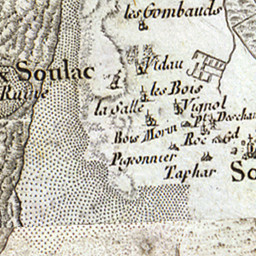 les Gombauds
Vidau
x Soulac
Ruiné
les Bois
la Salle
Vignol
Bois Morin
Pt Descha
Roc
Pigeonnier
Taphar
So